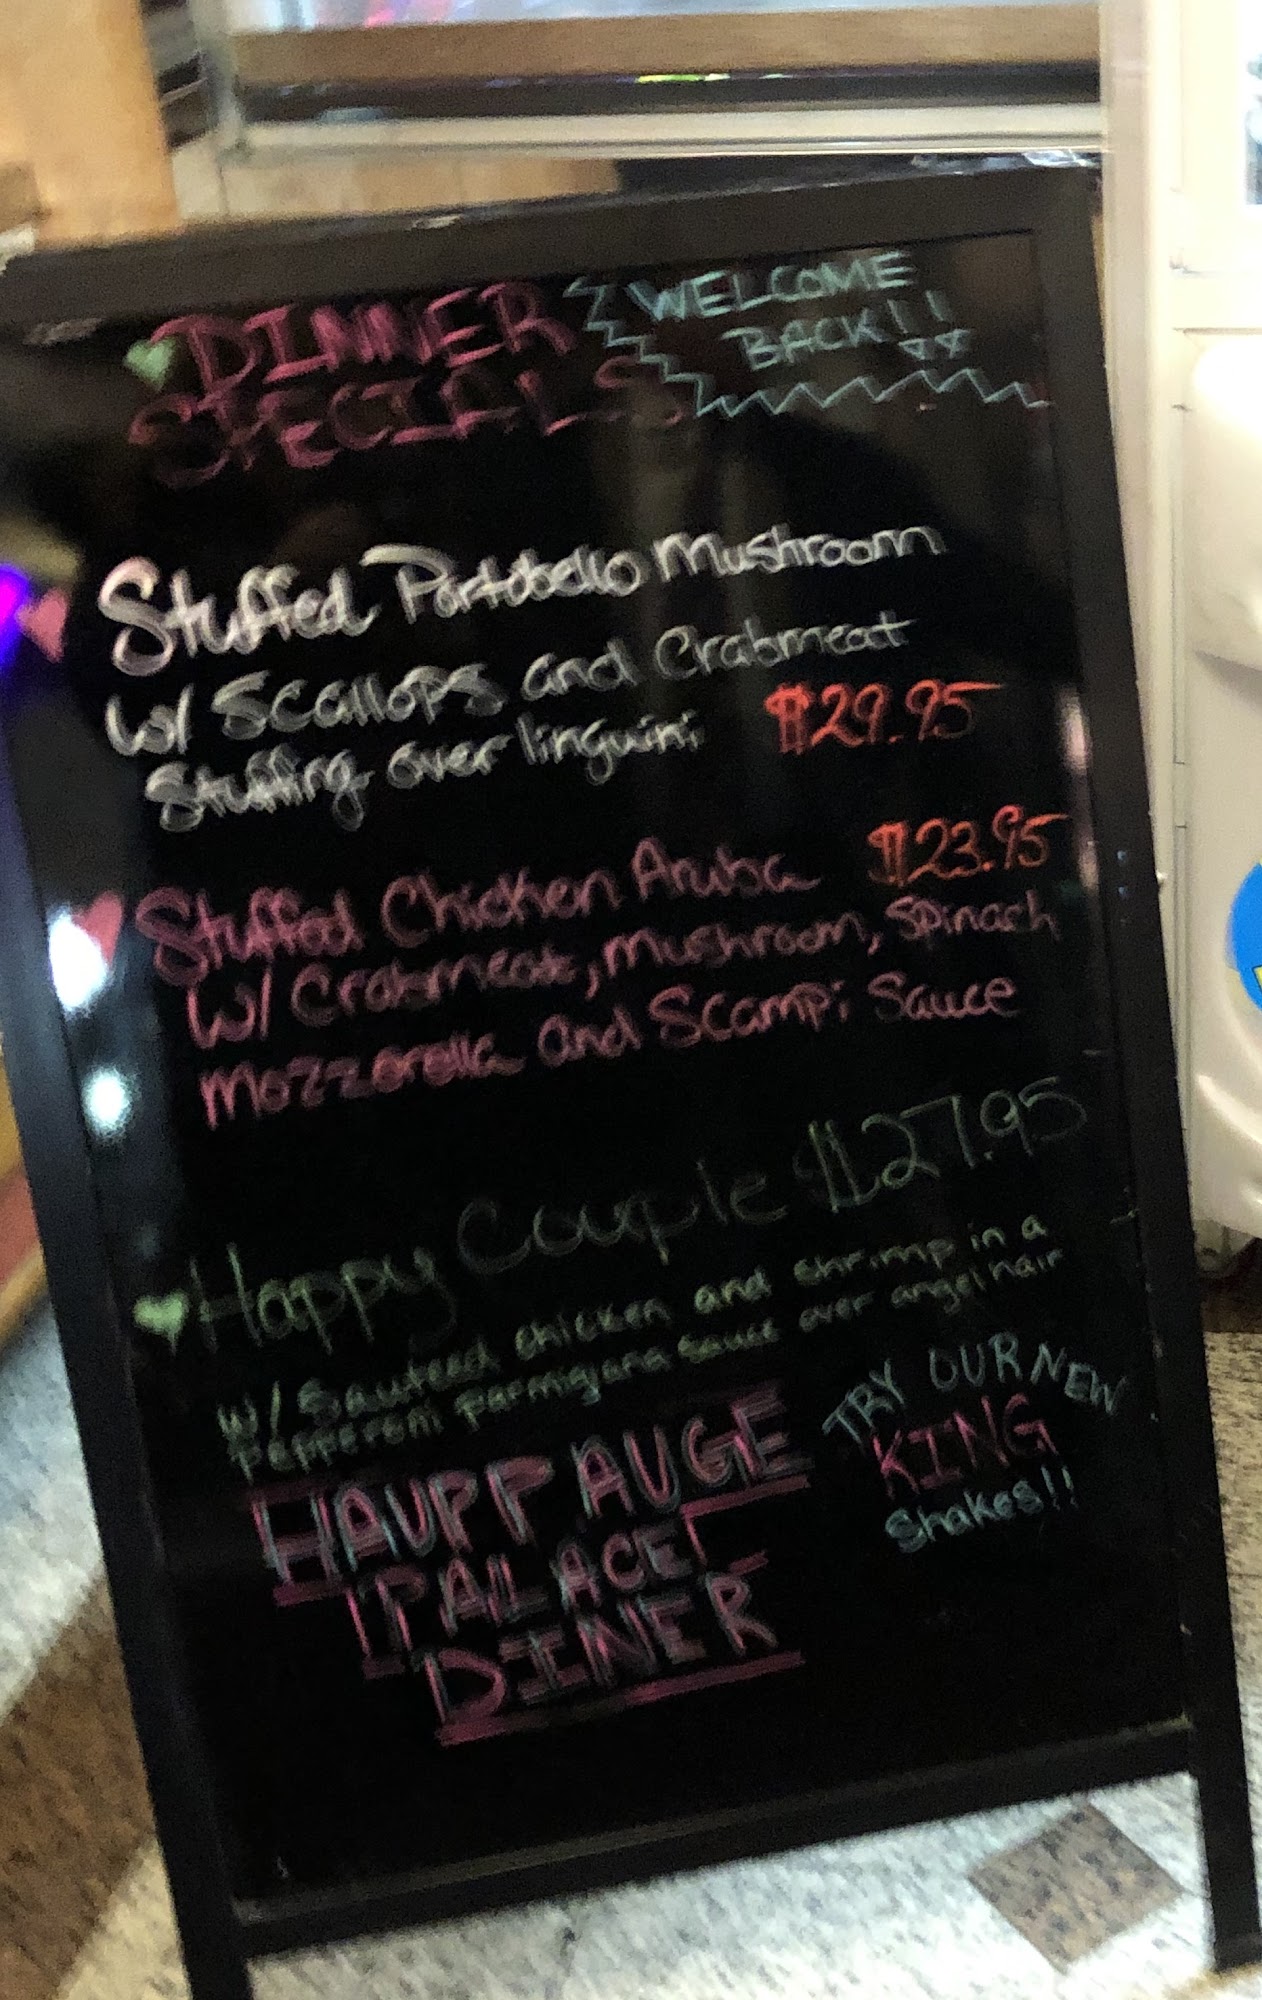 DINNER
SPECIALS
WELCOME
BACK!!
Stuffed Portobello Mushroom
w/ Scallops and Crabmeat
Stuffing over linguini $29.95
Stuffed Chicken Aruba $23.95
w/ Crabmeat, Mushroom, Spinach
Mozzorella and Scampi Sauce
Happy Couple $27.95
w/ Sauteed chicken and shrimp in a
pepperoni parmigiana sauce over angel hair
TRY OUR NEW
KING
Shakes!!
HAUPPAUGE
PALACE
DINER